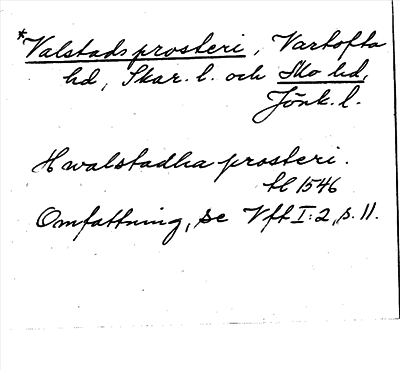 *Valstads prosteri, Vartofta
hd, Skar. l. och Mo hd,
Jönk. l.
Hwalstadha prosteri.
tl 1546
Omfattning, se Vft I:2, s. 11.